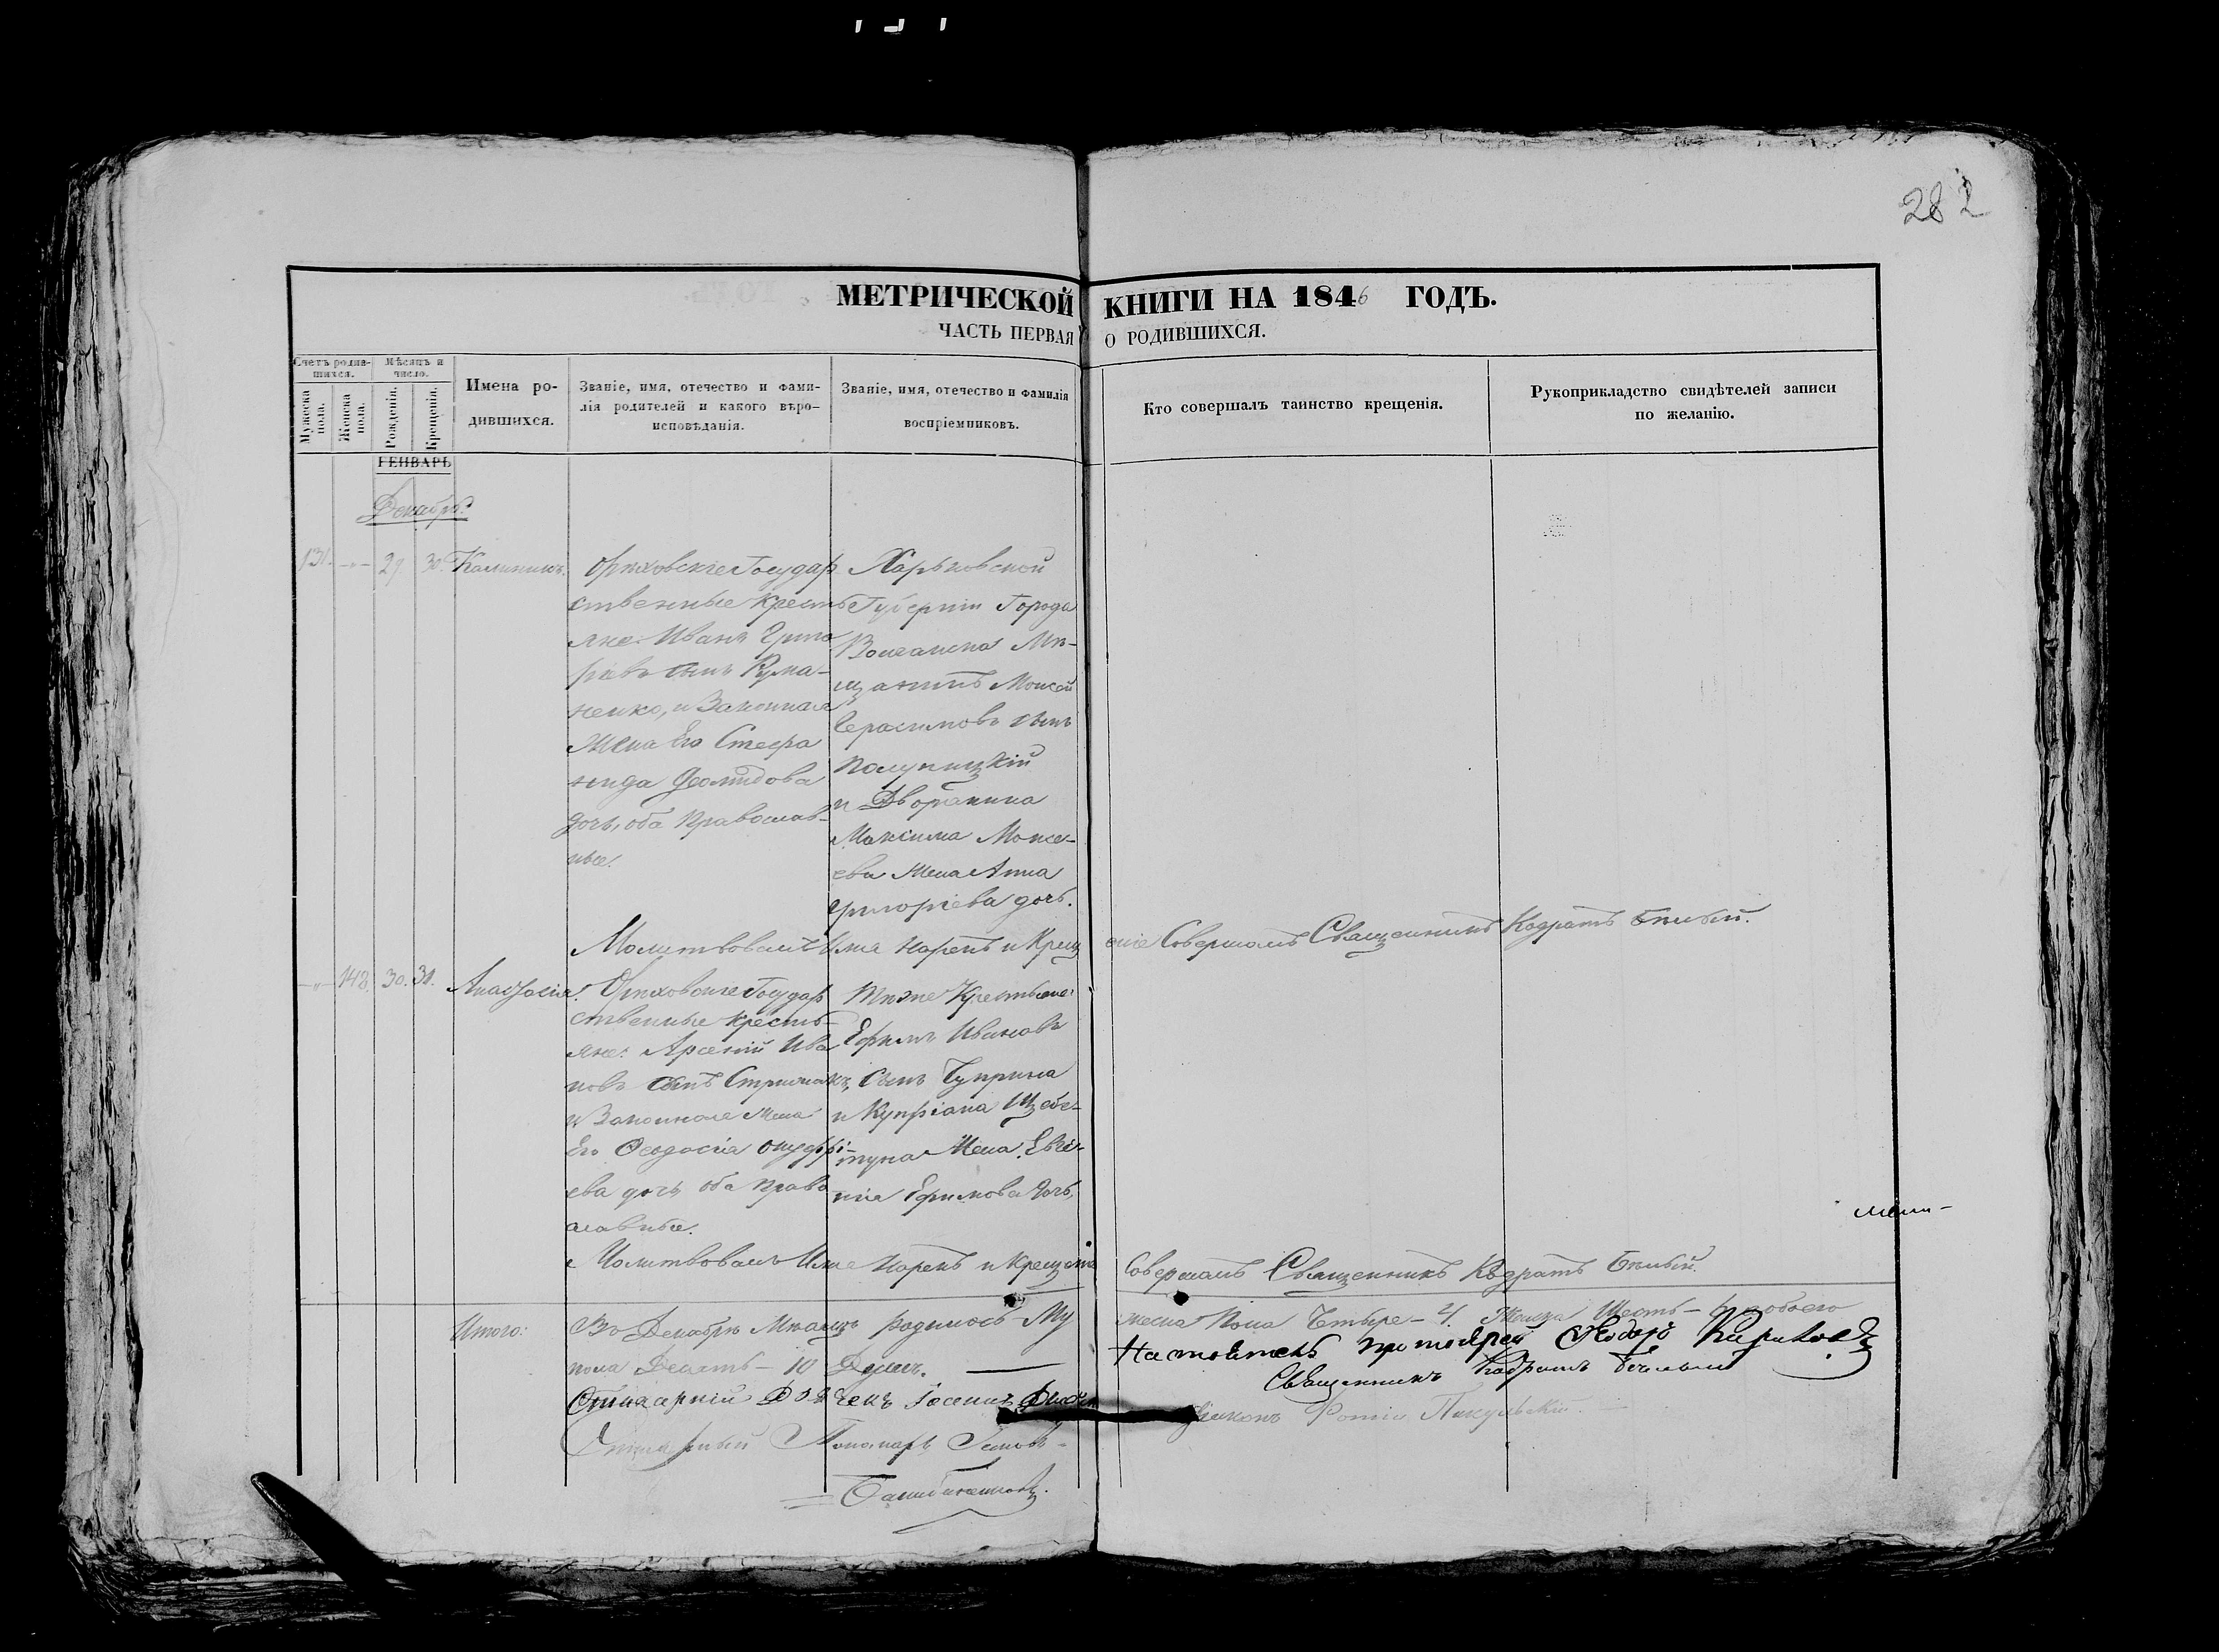 282
МЕТРИЧЕСКОЙ КНИГИ НА 1846 ГОДЪ.
ЧАСТЬ ПЕРВАЯ О РОДИВШИХСЯ.
Счетъ родив-
шихся.
Мужеска пола.
Женска пола.
Мѣсяцъ и
число.
Рожденія.
Крещенія.
Имена ро-
дившихся.
Званіе, имя, отечество и фами-
лія родителей и какого вѣро-
исповѣданія.
Званіе, имя, отечество и фамилія
воспріемниковъ.
Кто совершалъ таинство крещенія.
Рукоприкладство свидѣтелей записи
по желанію.
ГЕНВАРЬ
Декабрь
131. - 29. 30. Калиникъ.
Орѣховскіе Государ
ственные Кресть
яне: Иванъ Григо
рьевъ сынъ
ненко, и Законная
Жена Его Стефа
нида
дочь, оба Православ-
ные.
Харьковской
Губерніи Города
Волчанска Мѣ-
щанинъ Моисей
Герасимовъ сынъ
и Дворянина
Максима Моисе-
ева Жена Анна
Григорієва дочь.
Молитвовалъ Имя Нарекъ и Крещ еніе Совершалъ Священникъ Кодратъ Бѣлый.
- 148. 30. 31. Анастасія.
Орѣховскіе Государ
ственные Кресть-
яне: Арсеній Ива
новъ сынъ
и Законная Жена
Его Ѳеодосія Онуфрі-
ева дочь оба Право
славные.
Тѣже Крестьяне:
Ефимъ Ивановъ
сынъ Чуприна
и Купріана Щебе-
туна Жена Евге-
нія Ефимова дочь,
Молитвовалъ Имя Нарекъ и Крещеніе Совершалъ Священникъ Кодратъ Бѣлый.
Итого: Во Декабрѣ Мѣсяцѣ родилось Му жеска Пола Четыре - 4. Женска Шесть - обоего
пола Десять - 10 Душъ.
Настоятель протоіерей
Священникъ Кодратъ Бѣлый
Діаконъ
Пономарь